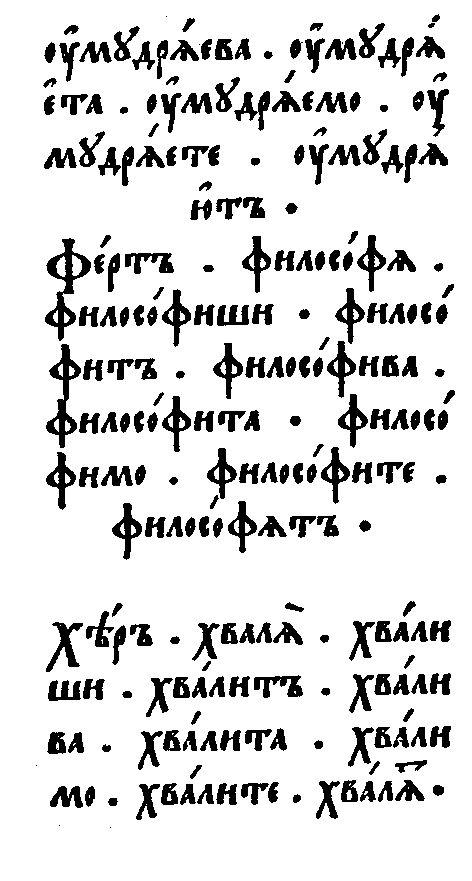 оу҆мꙋдрѧ́ева . оу҆мꙋдрѧ́
е҆та . оу҆мꙋдрѧ́емо . оу҆
мꙋдрѧ́ете . оу҆мꙋдрѧ́
ю҆тъ .
Фе́ртъ . филосо́фѧ .
филосо́фиши . филосо́
фитъ . филосо́фива .
филосо́фита . филосо́
фимо . филосо́фите .
филосо́фѧтъ .
Хѣ́ръ . хвалѧ̀ . хва́ли
ши . хва́литъ . хва́ли
ва . хва́лита . хва́ли
мо . хва́лите . хва́лѧⷮ .